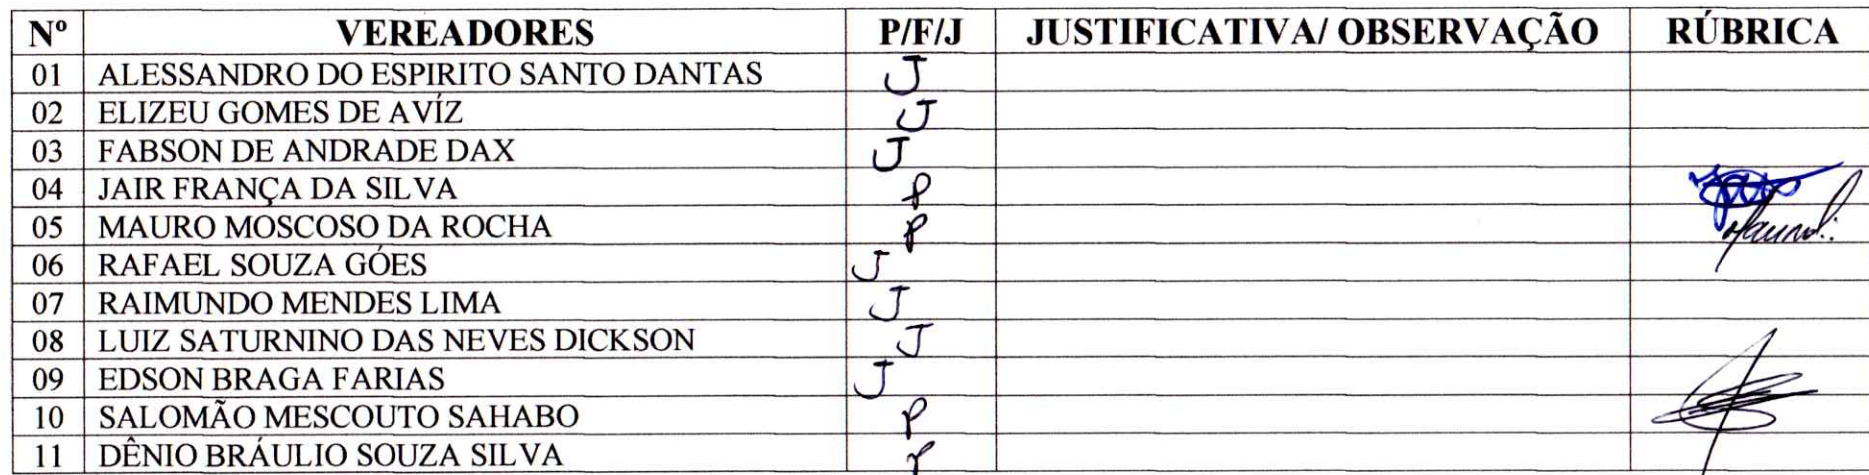 Nº VEREADORES P/F/J JUSTIFICATIVA/ OBSERVAÇÃO RÚBRICA
01 ALESSANDRO DO ESPIRITO SANTO DANTAS J
02 ELIZEU GOMES DE AVÍZ J
03 FABSON DE ANDRADE DAX J
04 JAIR FRANÇA DA SILVA P
05 MAURO MOSCOSO DA ROCHA P
06 RAFAEL SOUZA GÓES J
07 RAIMUNDO MENDES LIMA J
08 LUIZ SATURNINO DAS NEVES DICKSON J
09 EDSON BRAGA FARIAS J
10 SALOMÃO MESCOUTO SAHABO P
11 DÊNIO BRÁULIO SOUZA SILVA